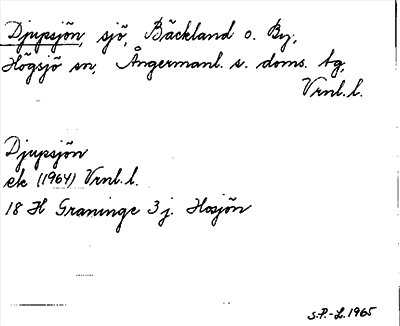 Djupsjön, sjö, Bäckland o. By,
Högsjö sn, Ångermanl. s. doms. tg,
Vrnl. l.
Djupsjön
ek (1964) Vrnl. l.
18 H Graninge 3 j. Hosjön
S.P.-L. 1965